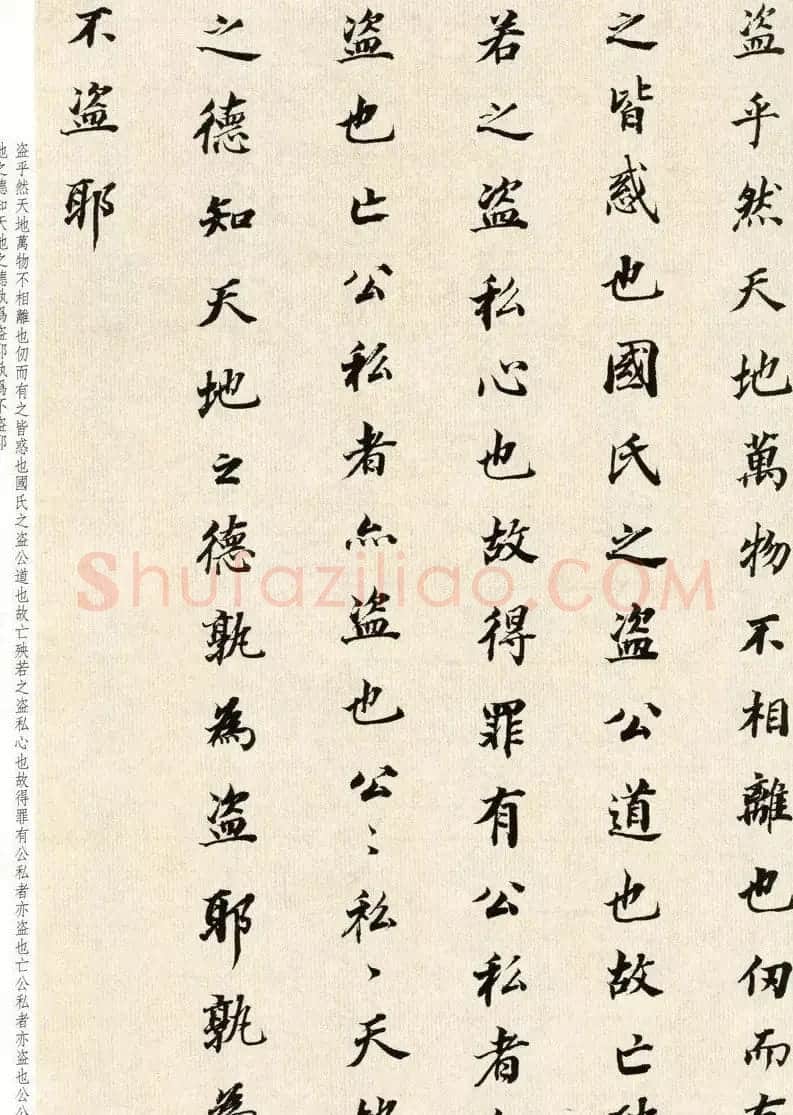 盗乎然天地萬物不相離也仞而有
之皆惑也國氏之盗公道也故亡
若之盗私心也故得罪有公私者
盗也亡公私者亦盗也公〻私〻天
之德知天地之德孰為盗耶孰為
不盗耶
盗乎然天地萬物不相離也仞而有之皆惑也國氏之盗公道也故亡殃若之盗私心也故得罪有公私者亦盗也亡公私者亦盗也公公
地之德知天地之德孰爲盗耶孰爲不盗耶
Shufaziliao.COM